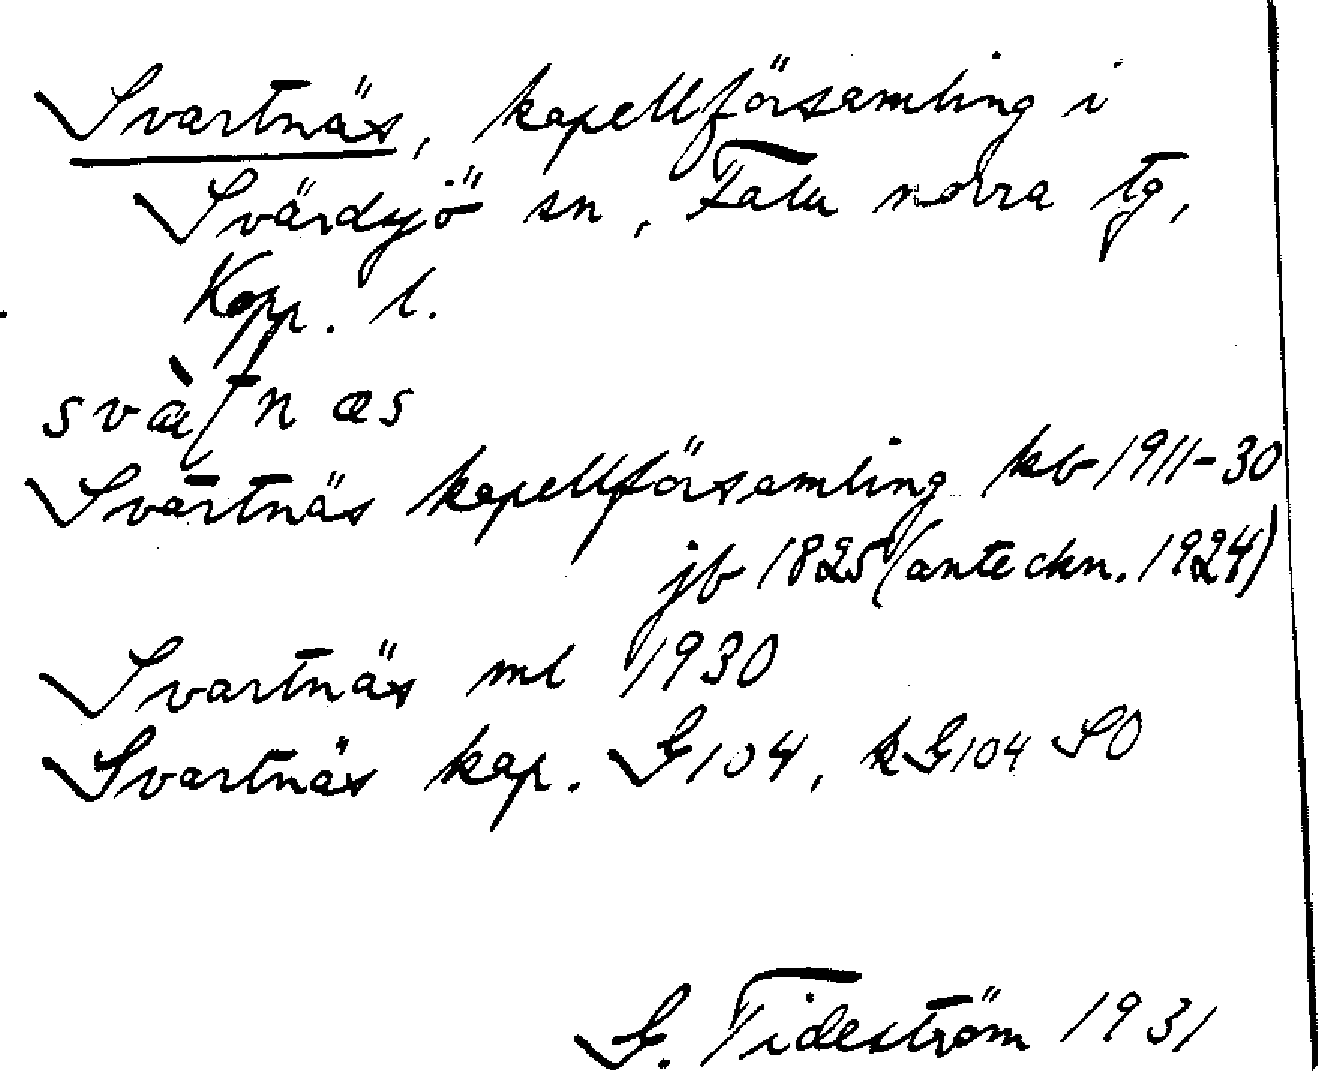 Svartnäs, kapellförsamling i
Svärdsjö sn, Falu norra tg,
Kopp. l.
svàʈnæs
Svartnäs kapellförsamling kb 1911-30
jb 1825 (anteckn. 1924)
Svartnäs ml 1930
Svartnäs kap. G104, kG104 SO
G. Tideström 1931